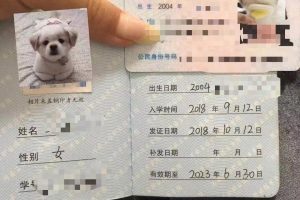 出生 2004
公民身份号码
相片未盖钢印者无效
姓名:
性别 女
学
出生日期 2004
入学时间 2018年9月12日
发证日期 2018年10月12日
补发日期 年 月 日
有效期至 2023年6月30日